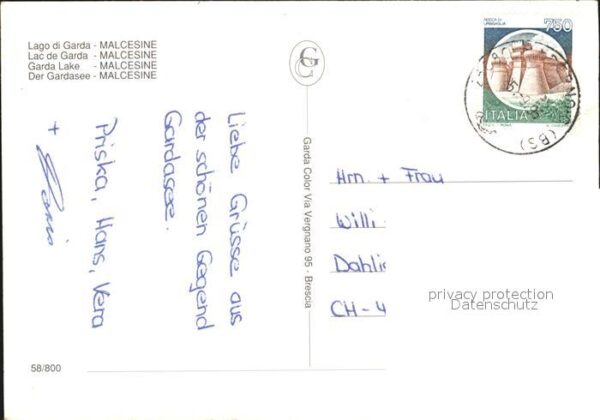 Lago di Garda - MALCESINE
Lac de Garda - MALCESINE
Garda Lake - MALCESINE
Der Gardasee - MALCESINE
Liebe Grüsse aus
der schönen Gegend
Gardasee.
Priska, Hans, Vera
+
58/800
GC
Garda Color Via Vergnano 95 - Brescia
ROCCA DI
URBISAGLIA
750
ITALIA
(BS)
Hrn. + Frau
Willi
Dahli
CH - 4
privacy protection
Datenschutz